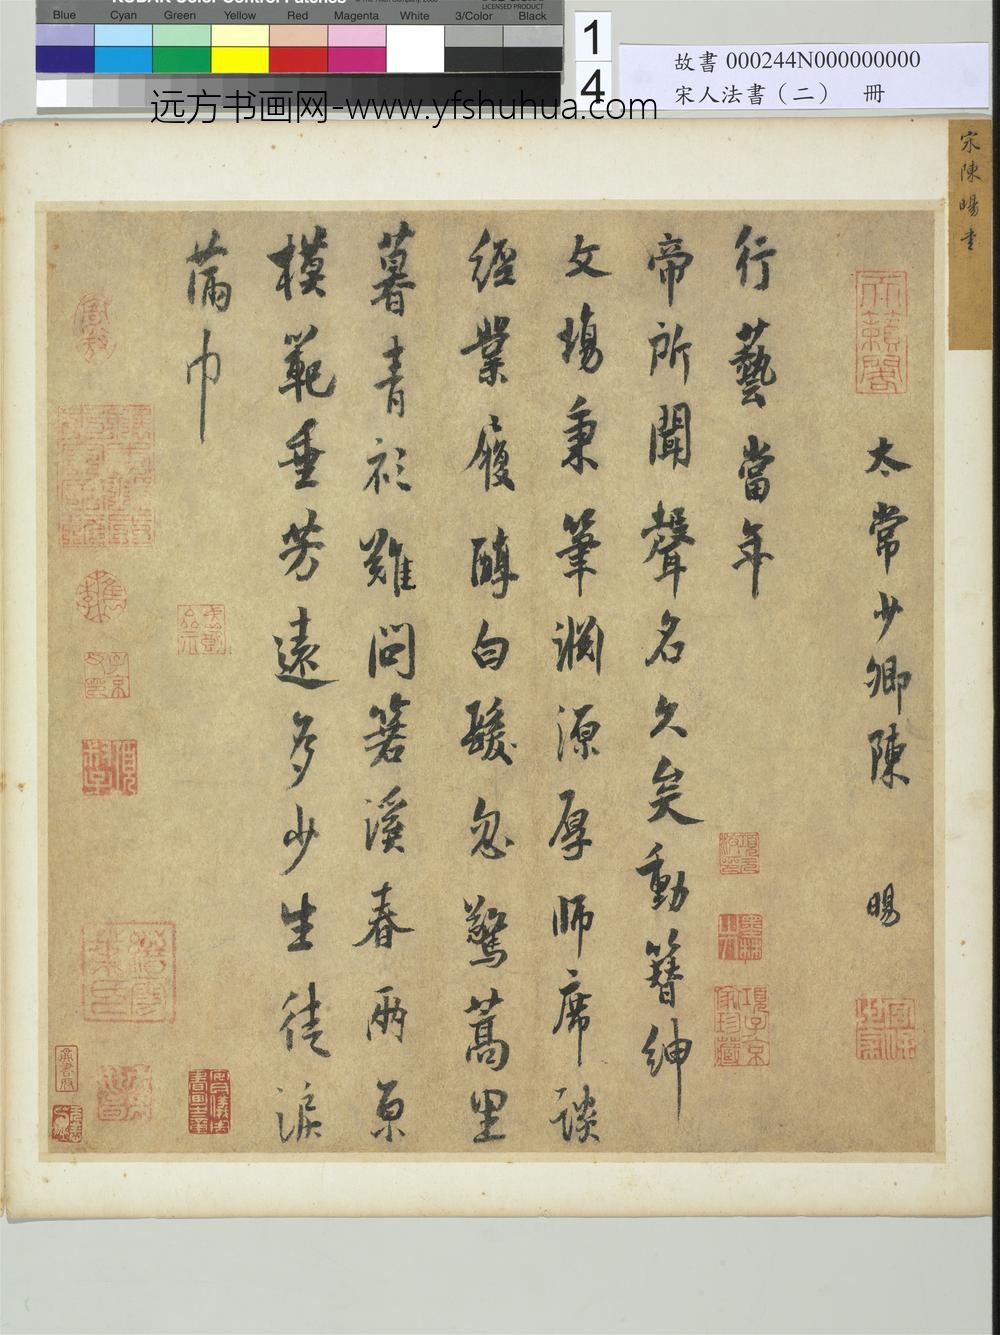 KODAK Color Control Patches
LICENSED PRODUCT
Blue Cyan Green Yellow Red Magenta White 3/Color Black
1
4
故書 000244N000000000
宋人法書（二） 冊
远方书画网-www.yfshuhua.com
宋陳暘書
太常少卿陳 暘
行藝當年
帝所聞聲名久矣動簪紳
文場秉筆淵源厚師席談
經業履醇白髮忽驚蒿里
暮青衫難問箬溪春兩京
模範垂芳遠多少生徒淚
滿巾
天籟閣
項子京家珍藏